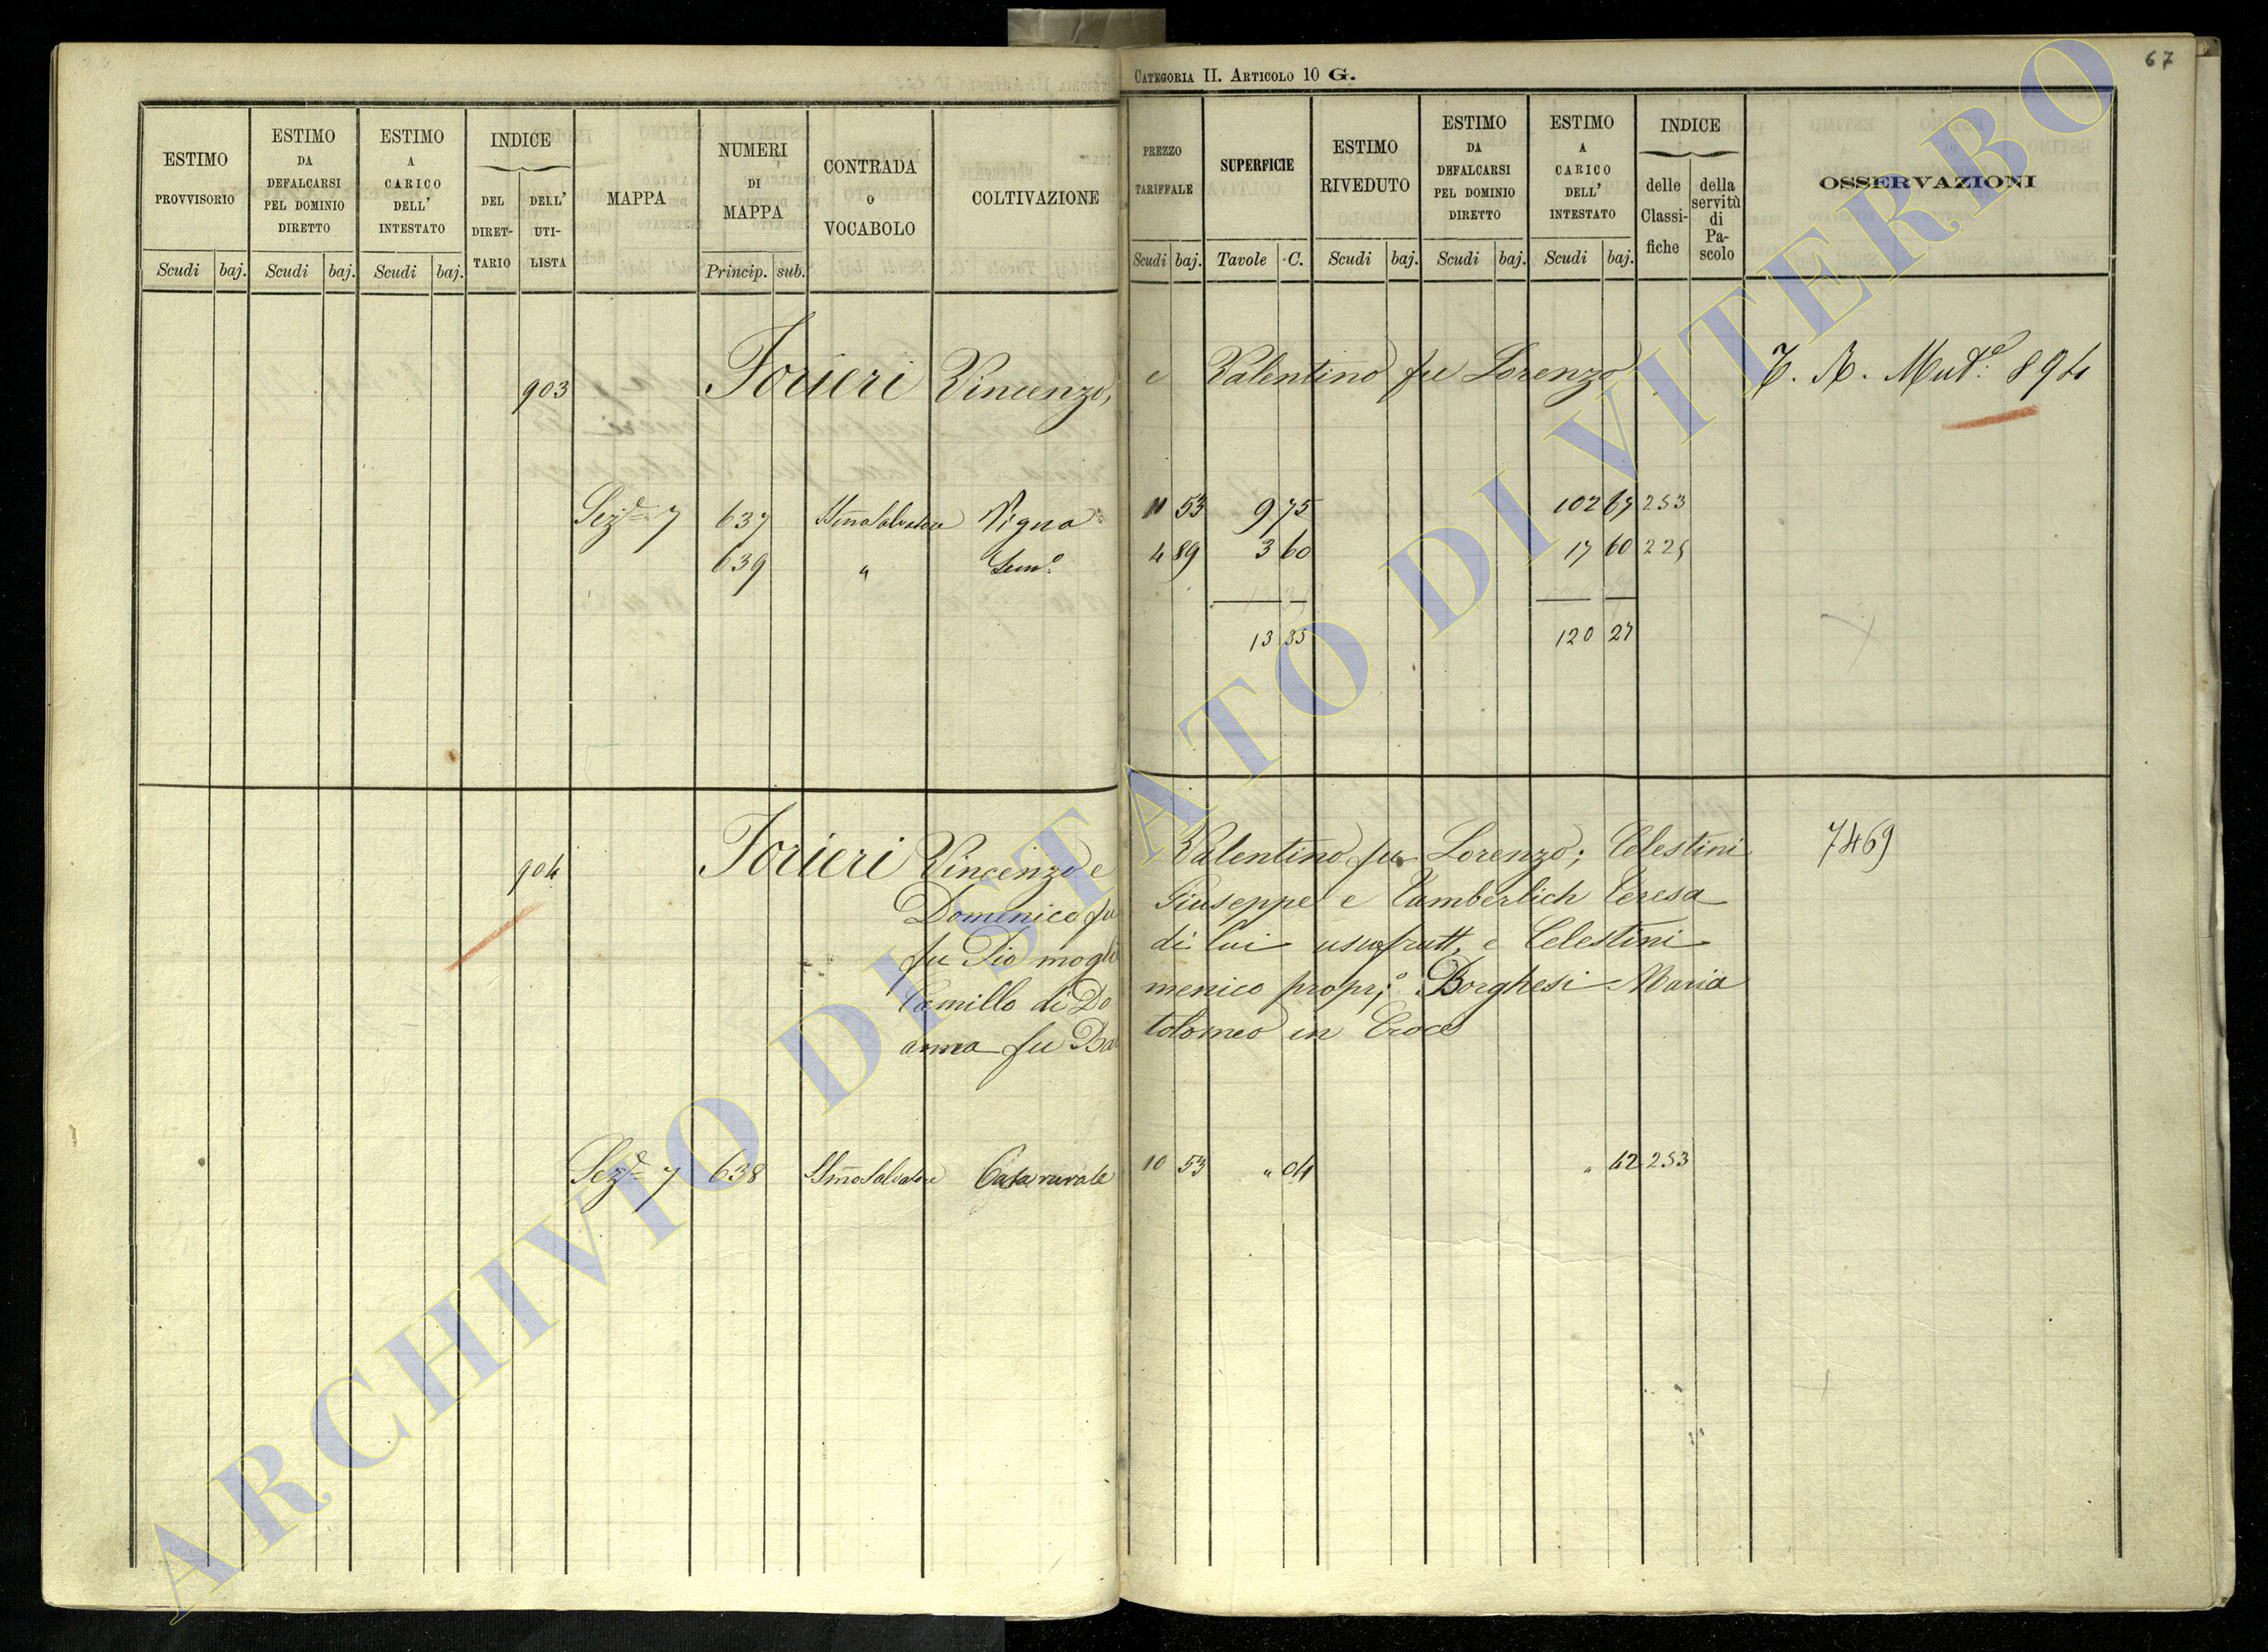 67
CATEGORIA II. ARTICOLO 10 G.
ESTIMO PROVVISORIO
ESTIMO DA DEFALCARSI PEL DOMINIO DIRETTO
ESTIMO A CARICO DELL' INTESTATO
INDICE
DEL DIRET-TARIO
DELL' UTI-LISTA
MAPPA
NUMERI DI MAPPA
CONTRADA o VOCABOLO
COLTIVAZIONE
PREZZO TARIFFALE
SUPERFICIE
ESTIMO RIVEDUTO
ESTIMO DA DEFALCARSI PEL DOMINIO DIRETTO
ESTIMO A CARICO DELL' INTESTATO
INDICE
delle Classi-fiche
della servitù di Pa-scolo
OSSERVAZIONI
Scudi baj. Scudi baj. Scudi baj. Princip. sub. Scudi baj. Tavole C. Scudi baj. Scudi baj. Scudi baj.
903 Torieri Vincenzo, e Valentino fu Lorenzo T. R. Mut.e 894
Sez.e 7 637 SSmoSalvatore Vigna 10 53 9 75 102 67 253
639 " Sem.o 4 89 3 60 17 60 225
13 35 120 27
904 Torieri Vincenzo e Valentino fu Lorenzo; Celestini 7469
Domenico fu Giuseppe e Tamberlich Teresa
fu Pio mogli di lui usufrutt. e Celestini
Camillo di Do menico propr;o Borghesi Maria
anna fu Ba tolomeo in Croce
Sez.e 7 638 SSmoSalvatore Casa rurale 10 53 " 04 " 42 253
ARCHIVIO DI STATO DI VITERBO